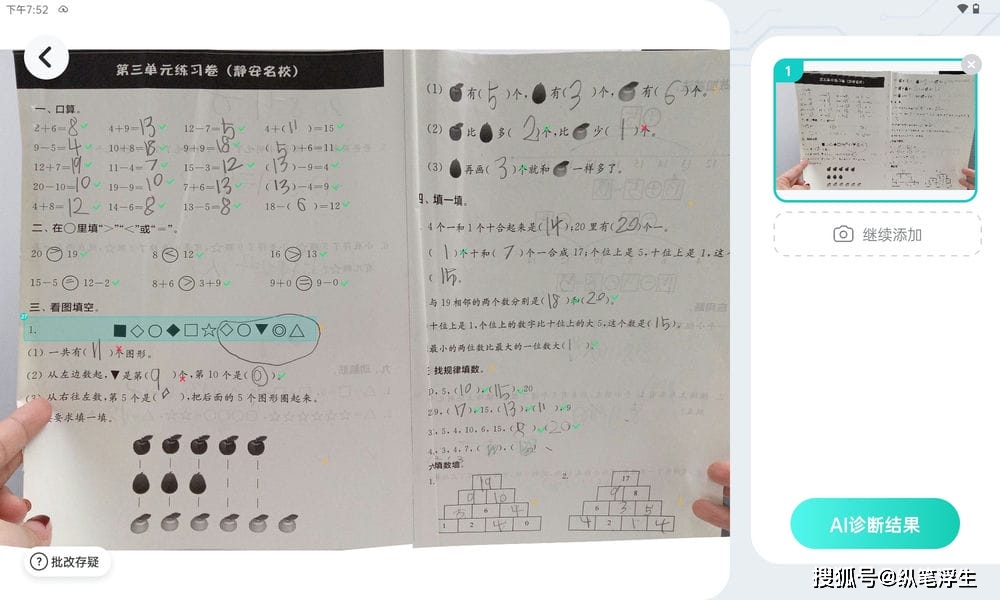 下午7:52
第三单元练习卷（静安名校）
一、口算。
2+6=8 4+9=13 12-7=5 4+(11)=15
9-5=4 10+8=18 9+9=18 (5)+6=11
12+7=19 11-4=7 15-3=12 (13)-9=4
20-10=10 19-9=10 7+6=13 (13)-4=9
4+8=12 14-6=8 13-5=8 18-(6)=12
二、在○里填“>”“<”或“=”。
20 > 19 8 < 12 16 > 13
15-5 = 12-2 8+6 > 3+9 9+0 = 9-0
三、看图填空。
1.
(1) 一共有(11)个图形。
(2) 从左边数起,▼是第(9)个,第10个是(◎)。
(3) 从右往左数,第5个是(◇),把后面的5个图形圈起来。
要求填一填。
(1) 有(5)个,有(3)个,有(6)个。
(2) 比多(2)个,比少(1)个。
(3) 再画(3)个就和一样多了。
四、填一填。
4个一和1个十合起来是(14);20里有(20)个一。
(1)个十和(7)个一合成17;个位上是5,十位上是1,这
(15。
与19相邻的两个数分别是(18)和(20)。
十位上是1,个位上的数字比十位上的大5,这个数是(15)。
最小的两位数比最大的一位数大(1)。
找规律填数。
0,5,(10),(15),20
(17),15,(13),(11),9
3,5,4,10,6,15,(8),(20)
4,3,4,7,
六、填数墙。
1. 19
9 10
5 6 4
1 2 4 0
2. 17
9 8
6 3 5
4 2 1 4
批改存疑
1
继续添加
AI诊断结果
搜狐号@纵笔浮生